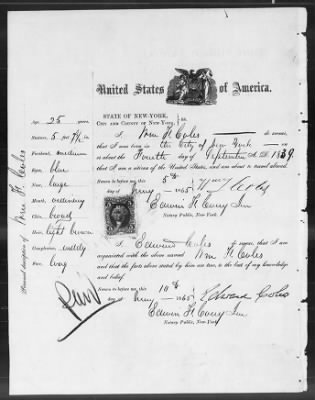 United States of America.
STATE OF NEW YORK,
CITY AND COUNTY OF NEW YORK, } ss.
I, Wm H Coles do swear,
that I was born in the City of New York
on or about the Fourth day of September A.D. 1839
that I am a citizen of the United States, and am about to travel abroad.
Sworn to before me this 5th
day of 1865 Wm H Coles
Edwin F Corey Jun
Notary Public, New York.
I, Edward Coles do swear, that I am
acquainted with the above named Wm H Coles
and that the facts above stated by him are true, to the best of my knowledge
and belief.
Sworn to before me this 10th
day of 1865 Edward Coles
Edwin F Corey Jun
Notary Public, New York.
Personal description of Wm H Coles
Age, 25 years
Stature, 5 feet 7 1/2 in
Forehead, medium
Eyes, blue
Nose, large
Mouth,
Chin, broad
Hair, light brown
Complexion,
Face, long
Paid